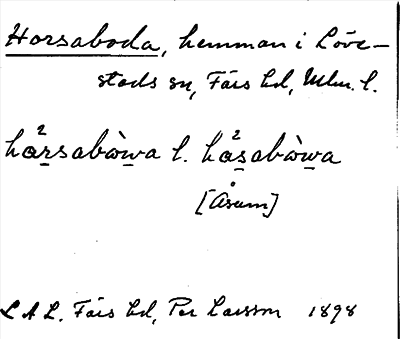 Horsaboda, hemman i Löve-
stads sn, Färs hd, Mlm. l.
hårsabòwa l. håsabòwa
[Åsum]
L A L. Färs hd, Per Larsson 1898